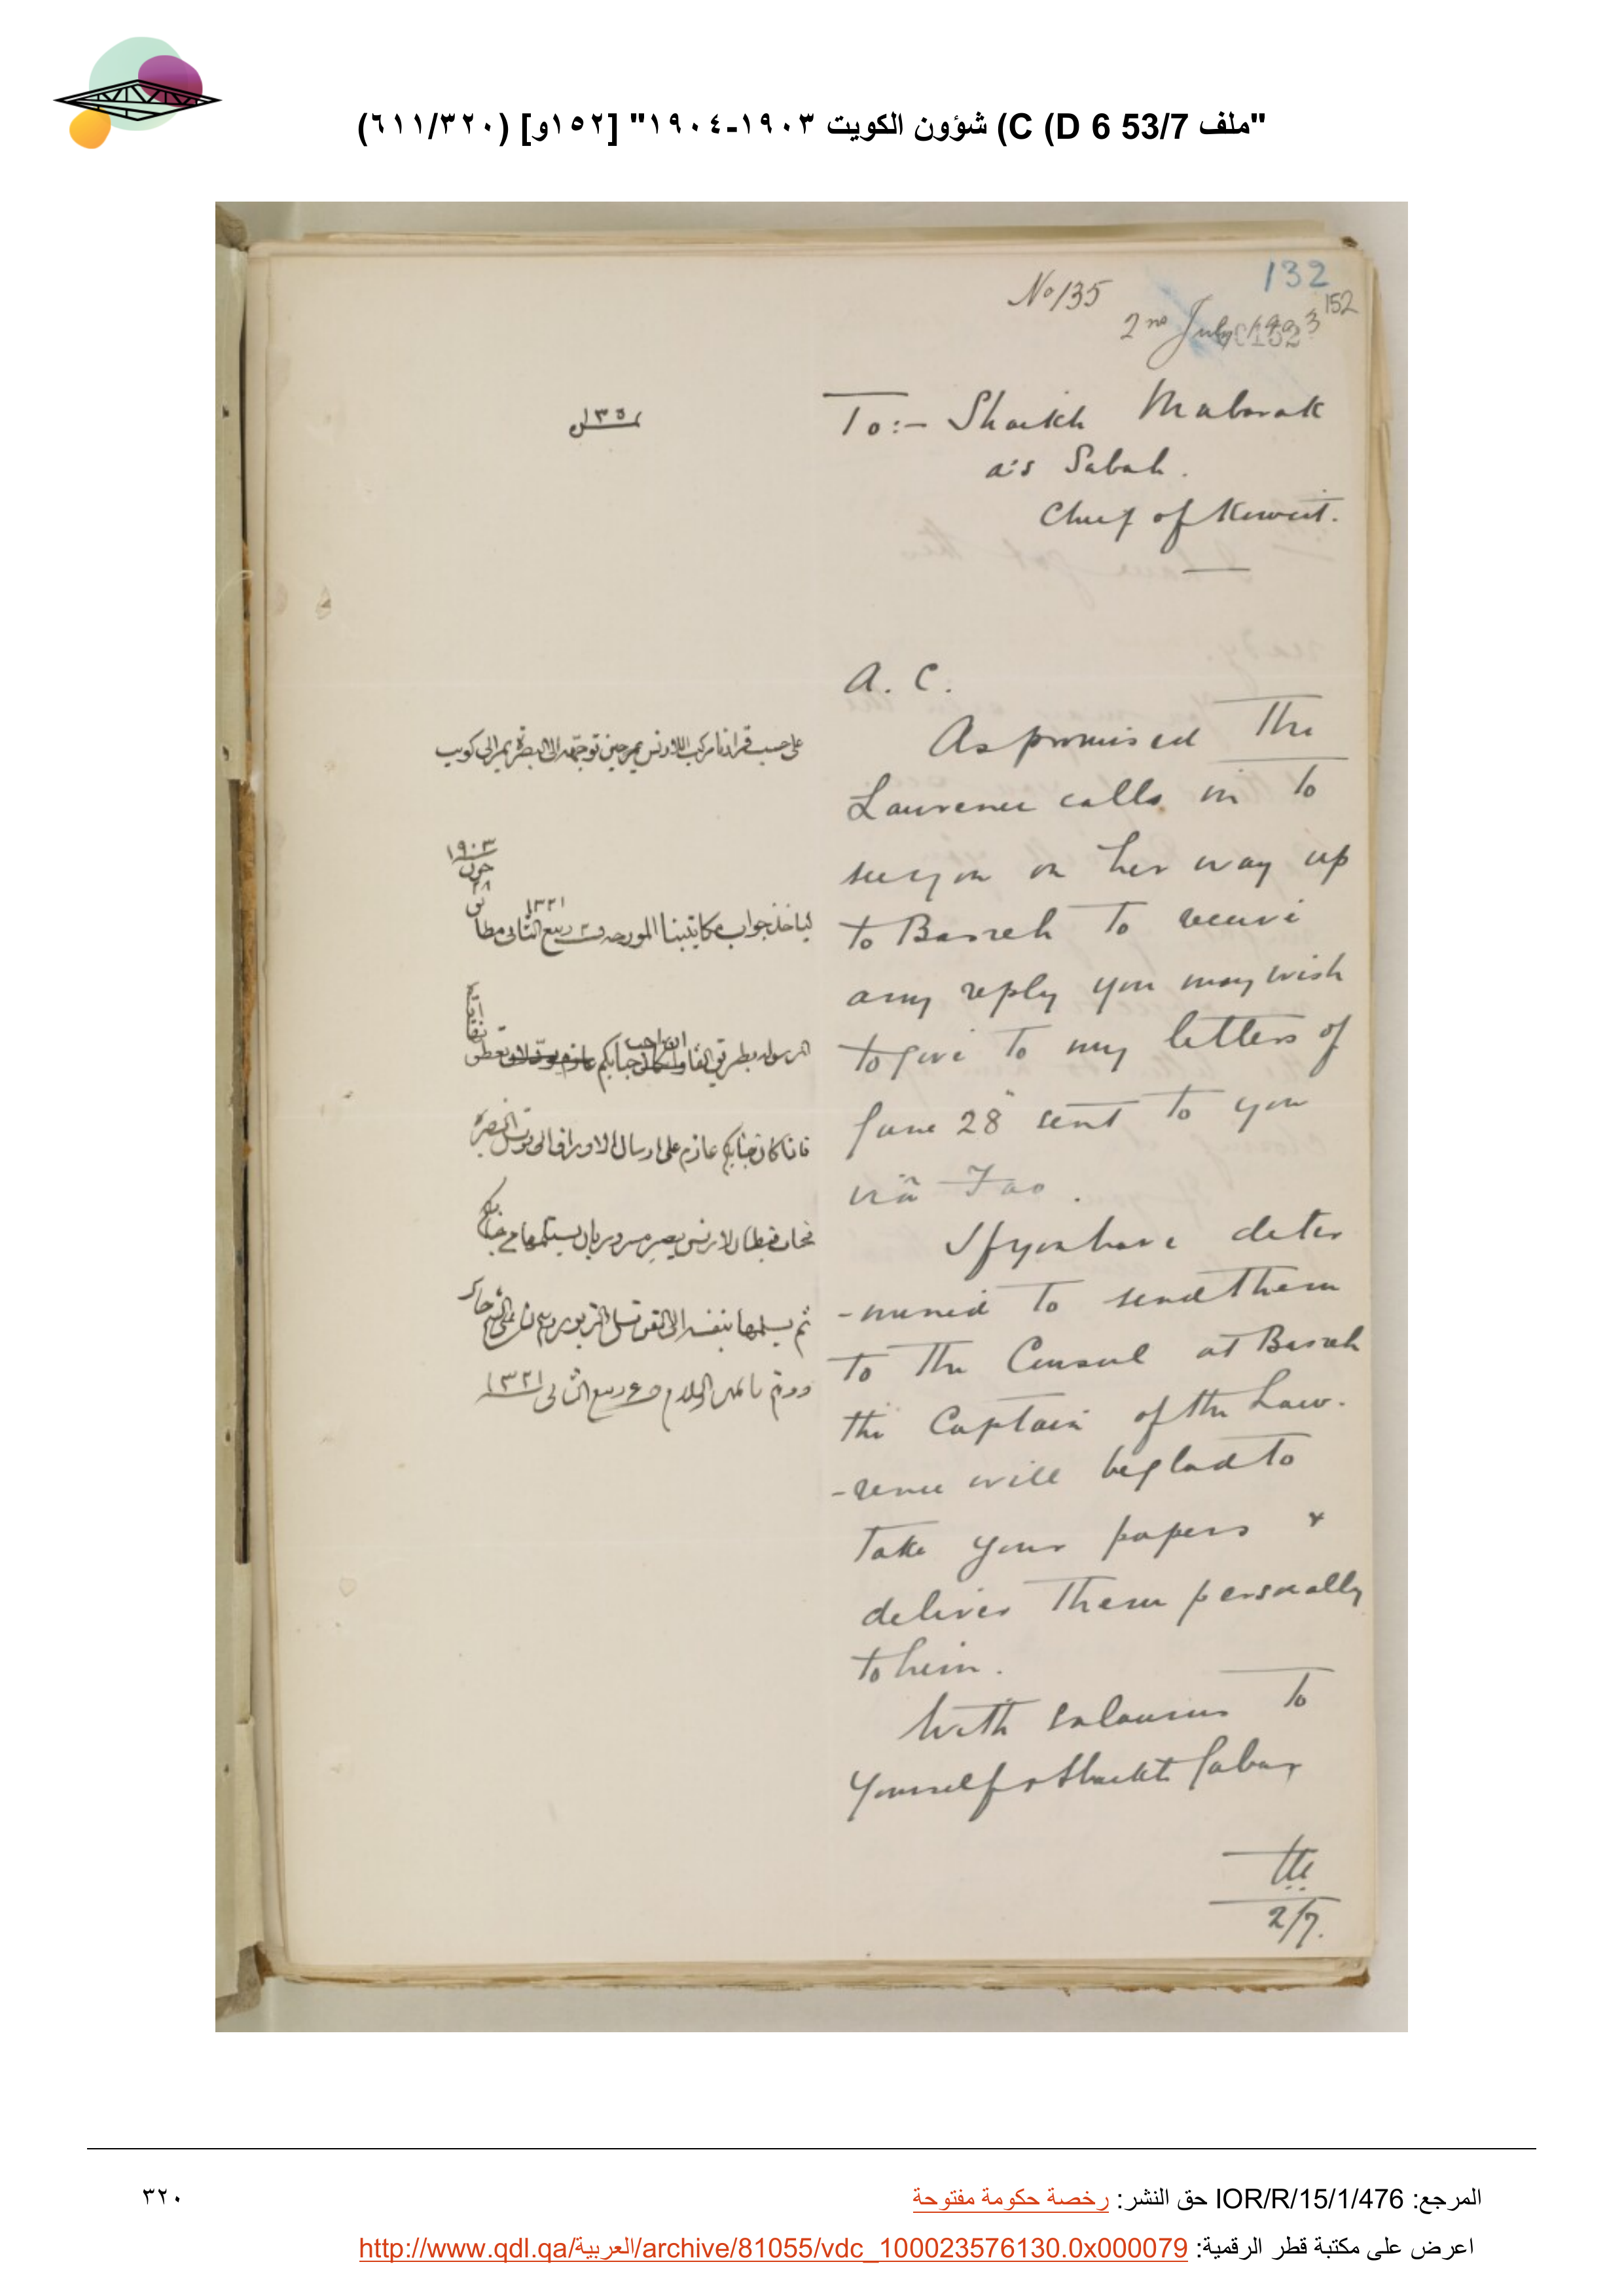 "ملف 53/7 D 6) C) شؤون الكويت ١٩٠٣-١٩٠٤" [١٥٢و] (٣٢٠/٦١١)
132
No 135
152
2nd July 1903
To:- Shaikh Mabarak
as Sabah.
Chief of Koweit.
نمبر ١٣٥
A. C.
As promised The
Lawrence calls in to
see you on her way up
to Basreh to receive
any reply you may wish
to give to my letters of
June 28 sent to you
viâ Fao.
If you have deter
-mined to send them
to the Consul at Basrah
the Captain of the Law-
-rence will be glad to
take your papers &
deliver them personally
to him.
With salaams to
yourself & Shaikh Jabar
2/7.
على حسب قرارنا مركب اللارنس يمر حين توجهه الى البصرة يمر الى كويت
١٩٠٣
جون
٢٨
١٣٢١
لياخذ جواب مكاتيبنا المورخه ربيع الثاني مطا
بق
جنابكم
فاذا كان جنابكم عازم على ارسال الاوراق الى قونسل البصرة
قبطان لارنس يصير مسرور بان يستلمها من جنابكم
ثم يسلمها بنفسه الى القونسل
ودمتم والسلام ربيع الثاني ١٣٢١
المرجع: IOR/R/15/1/476 حق النشر: رخصة حكومة مفتوحة
٣٢٠
اعرض على مكتبة قطر الرقمية: http://www.qdl.qa/العربية/archive/81055/vdc_100023576130.0x000079